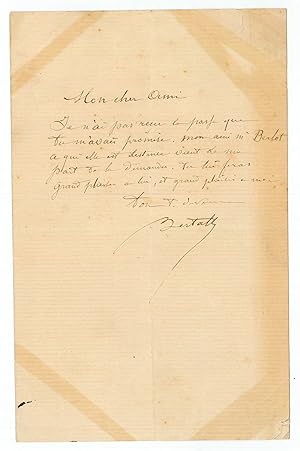 Mon cher Ami
Je n'ai pas reçu la passe que
tu m'avais promise. mon ami Mr Berlot
a qui elle est destinée vient de me
la demander. tu lui feras
grand plaisir a lui, et grand plaisir a moi.
ton t. dévoué
Bertall